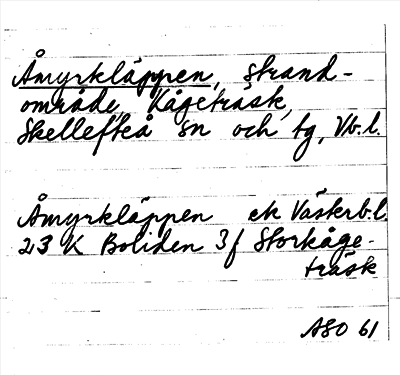 Åmyrkläppen, strand-
område, Kågeträsk,
Skellefteå sn och tg, Vb.l.
Åmyrkläppen ek Västerb.l
23 K Boliden 3f Storkåge-
träsk
ASO 61